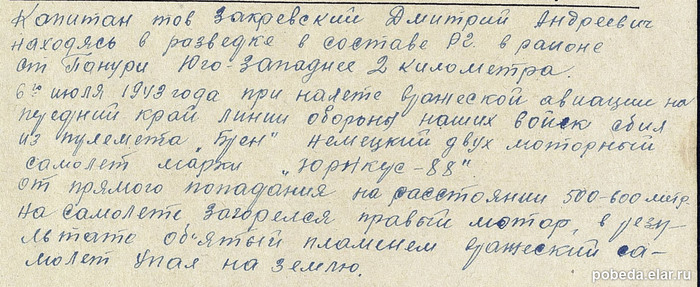 Капитан тов Закревский Дмитрий Андреевич
находясь в разведке в составе РГ. в районе
ст Паныри Юго-Западнее 2 километра.
6го июля 1943 года при налете вражеской авиации на
передний край линии обороны наших войск сбил
из пулемета „Брен" немецкий двух моторный
самолет марки „Юрнкус-88"
от прямого попадания на расстоянии 500-600 метр.
на самолете загорелся правый мотор, в резу-
льтате об'ятый пламенем вражеский са-
молет упал на землю.
pobeda.elar.ru